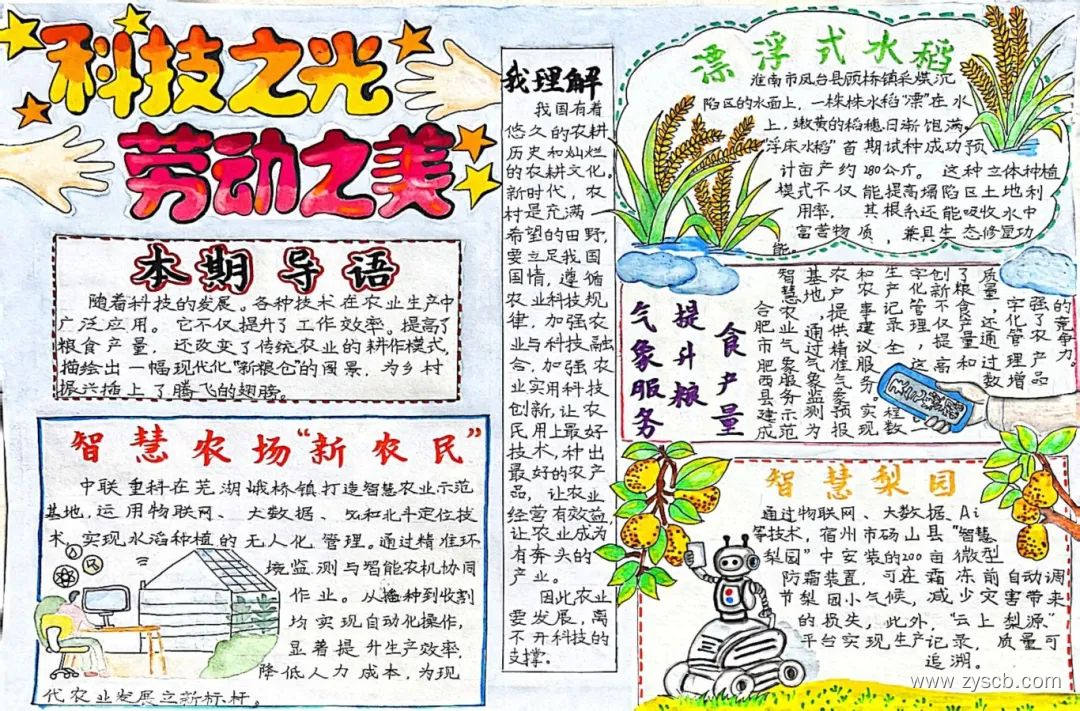 科技之光
劳动之美
本期导语
随着科技的发展。各种技术在农业生产中
广泛应用。它不仅提升了工作效率。提高了
粮食产量，还改变了传统农业的耕作模式，
描绘出一幅现代化“新粮仓”的图景，为乡村
振兴插上了腾飞的翅膀。
智慧农场“新农民”
中联重科在芜湖峨桥镇打造智慧农业示范
基地，运用物联网、大数据、5G和北斗定位技
术，实现水滔种植的无人化管理。通过精准环
境监测与智能农机协同
作业。从播种到收割
均实现自动化操作，
显着提升生产效率，
降低人力成本，为现
代农业发展立新标杆。
我理解
我国有着
悠久的农耕
历史和灿烂
的农耕文化。
新时代，农
村是充满
希望的田野，
要立足我国
国情，遵循
农业科技规
律，加强农
业与科技融
合，加强农
业实用科技
创新，让农
民用上最好
技术，种出
最好的农产
品，让农业
经营有效益，
让农业成为
有奔头的
产业。
因此农业
要发展，离
不开科技的
支撑。
漂浮式水稻
淮南市凤台县顾桥镇采煤沉
陷区的水面上，一株株水稻“漂”在水
上，嫩黄的稻穗日渐饱满。
“浮床水稻”首期试种成功预
计亩产约280公斤。这种立体种植
模式不仅能提高塌陷区土地利
用率，其根系还能吸收水中
富营物质，兼具生态修复功
能。
气象服务
提升粮
食产量
合肥市肥西县建成
智慧农业气象服务示范
基地，通过气象监测为
农户提供精准气象预报
和农事建议服务。实现
生产记录程数
字化管理，这
创新不仅提高
了粮食产量和
质量，还通过数
字化管理增
强了农产品
的竞争力。
智慧梨园
通过物联网、大数据、Ai
等技术，宿州市砀山县“智慧
梨园”中安装的200亩微型
防霜装置，可在霜冻前自动调
节梨园小气候，减少灾害带来
的损失，此外，“云上梨源”
平台实现生产记录，质量可
追溯。
www.zyscb.com